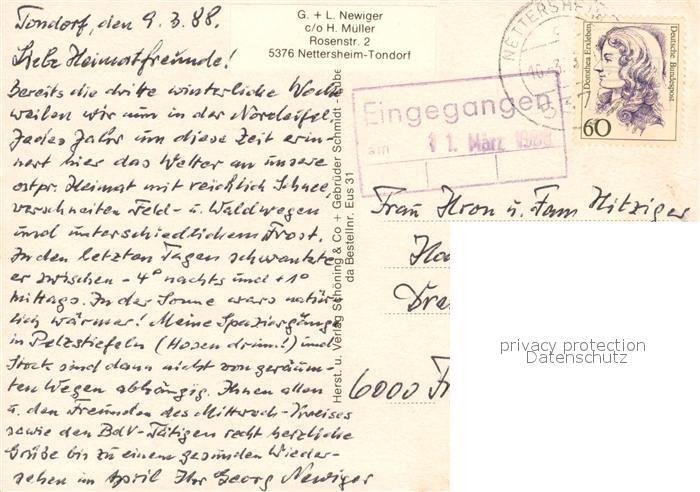 Tondorf, den 9.3.88.
Liebe Heimatfreunde!
Bereits die dritte winterliche Woche
weilen wir nun in der Nordeifel.
Jedes Jahr um diese Zeit erin-
nert hier das Wetter an unsere
ostpr. Heimat mit reichlich Schnee,
verschneiten Feld- u. Waldwegen
und unterschiedlichem Frost.
In den letzten Tagen schwankte
er zwischen -4° nachts und +1°
mittags. In der Sonne wars natür-
lich wärmer! Meine Spaziergänge
in Pelzstiefeln (Hosen drim!) und
Stock sind dann nicht von geräum-
ten Wegen abhängig. Ihnen allen
u. den Freunden des Mittwoch-Kreises
sowie den BdV-Tätigen recht herzliche
Grüße bis zu einem gesunden Wieder-
sehen im April Ihr Georg Newiger
G. + L. Newiger
c/o H. Müller
Rosenstr. 2
5376 Nettersheim-Tondorf
Herst. u. Verlag Schöning & Co + Gebrüder Schmidt -
da Bestellnr. Eus 31
Eingegangen
am 11. März 1988
NETTERSHEIM
Dorothea Erxleben
Deutsche Bundespost
60
Frau Hron u. Fam Hitziger
6000 F
privacy protection
Datenschutz